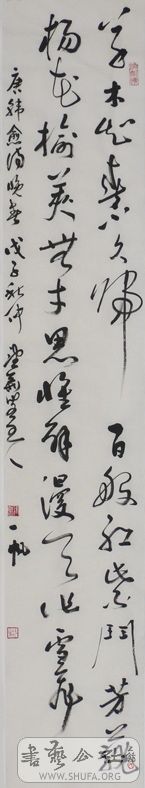 草木知春不久歸 百般紅紫鬥芳菲
楊花榆莢無才思惟解漫天作雪飛
唐韓愈詩晚春 戊子秋仲 一帆
書藝公社
WWW.SHUFA.ORG